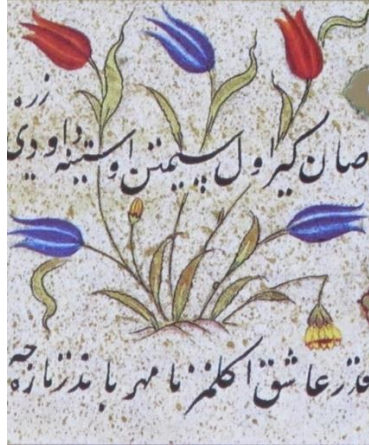 صان كیر اول سیمتن اوستینه داودی زره
قدر عاشق اكلمز نا مهر با ندر تازه جه